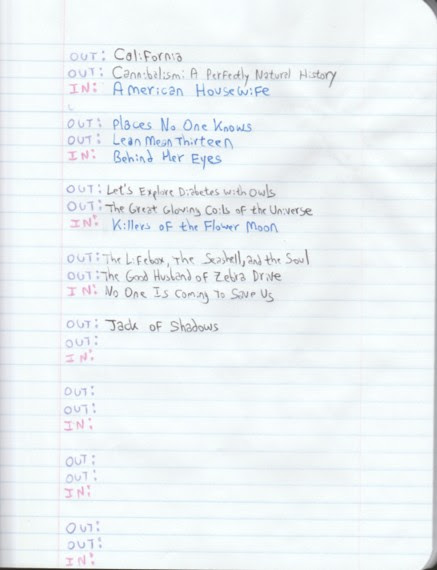 OUT: California
OUT: Cannibalism: A Perfectly Natural History
IN: American Housewife
OUT: Places No One Knows
OUT: Lean Mean Thirteen
IN: Behind Her Eyes
OUT: Let's Explore Diabetes with Owls
OUT: The Great Glowing Coils of the Universe
IN: Killers of the Flower Moon
OUT: The Lifebox, The Seashell, and the Soul
OUT: The Good Husband of Zebra Drive
IN: No One Is Coming To Save Us
OUT: Jack of Shadows
OUT:
IN:
OUT:
OUT:
IN:
OUT:
OUT:
IN:
OUT:
OUT:
IN: